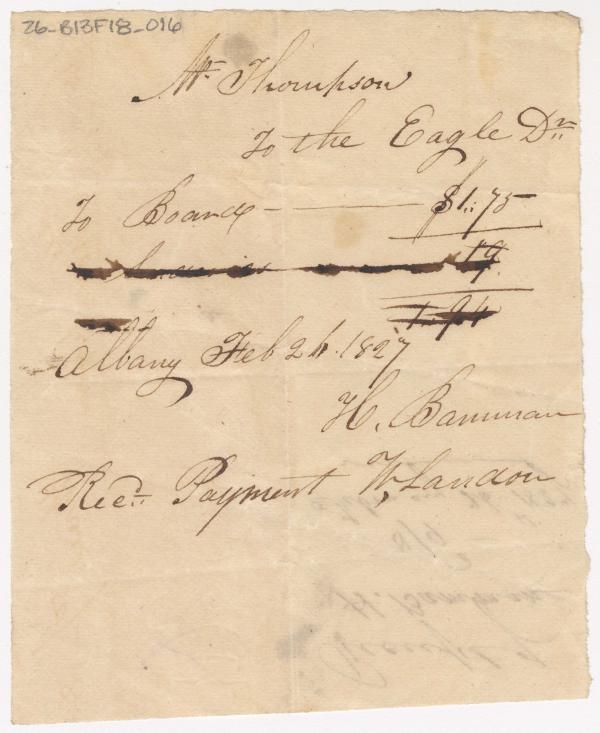 26-B13F18-016
Mr Thompson
To the Eagle Dr
To Board - $1.75
19
1.94
Albany Feb 24. 1827
H. Bannman
Recd Payment W, Landon